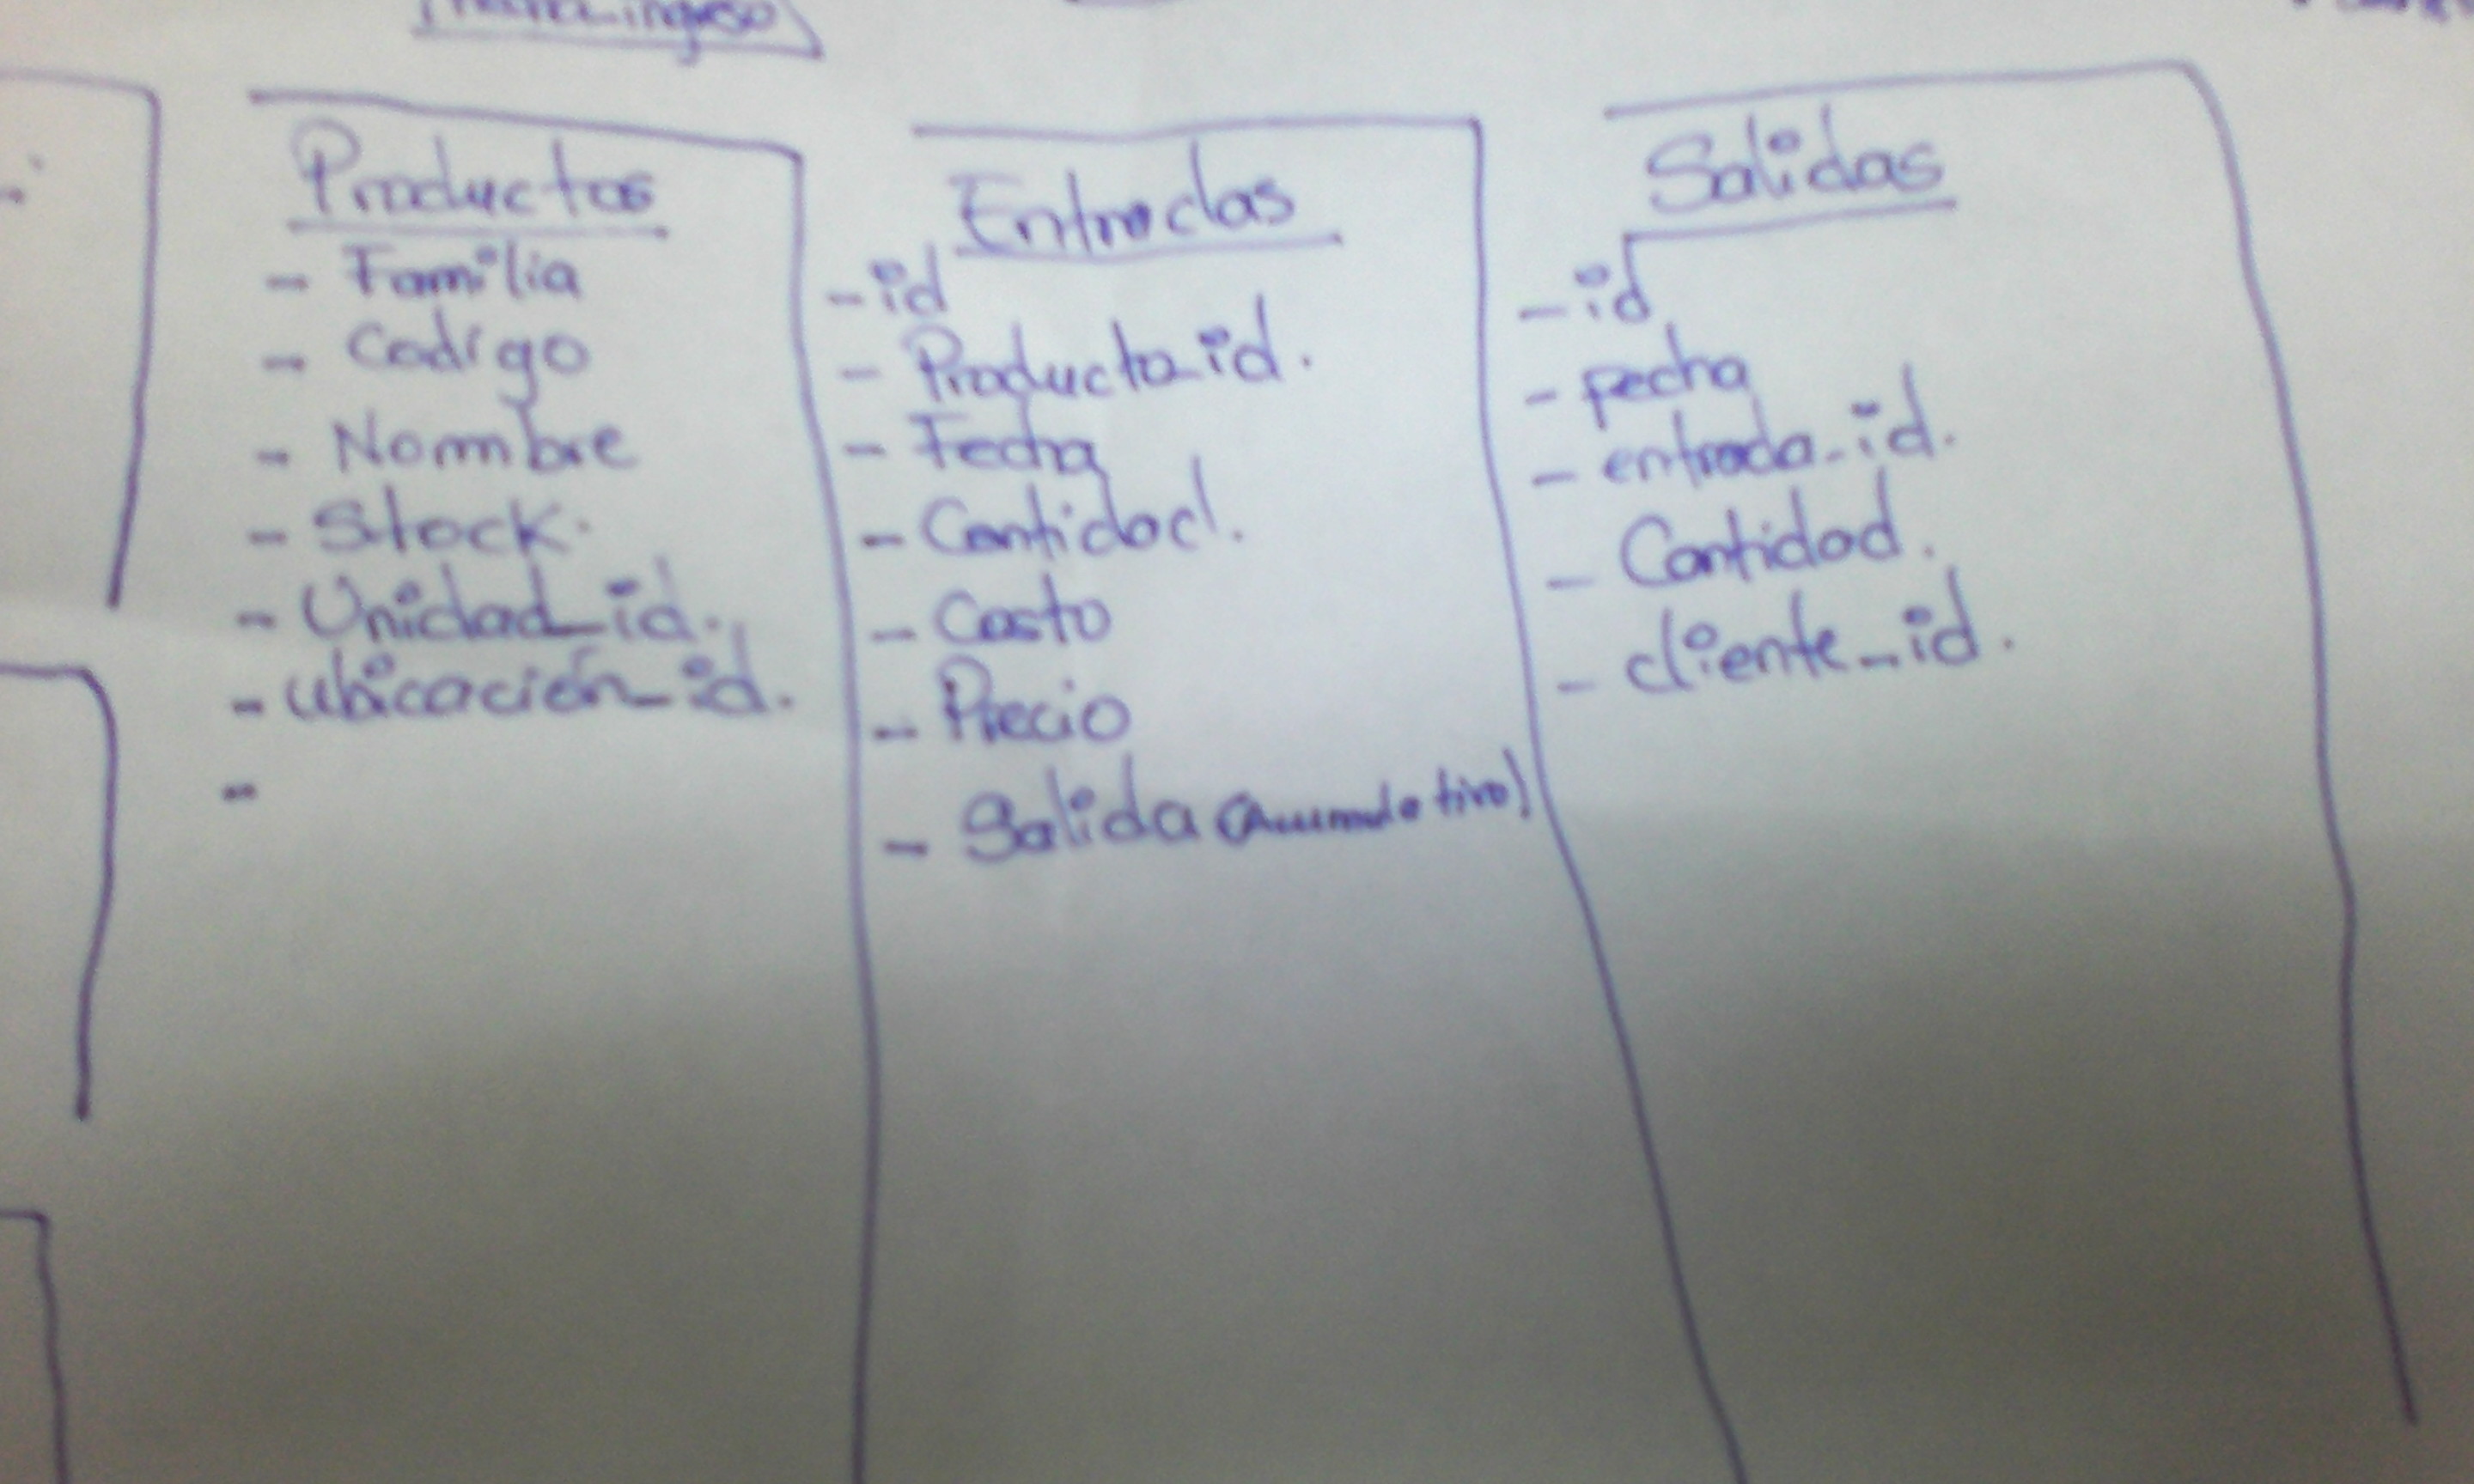 Productos
- Familia
- Codigo
- Nombre
- Stock.
- Unidad_id.
- Ubicación_id.
-
Entradas
- id
- Producto_id.
- Fecha
- Cantidad.
- Costo
- Precio
- Salida (Acumulativo)
Salidas
- id
- fecha
- entrada_id.
- Cantidad.
- cliente_id.